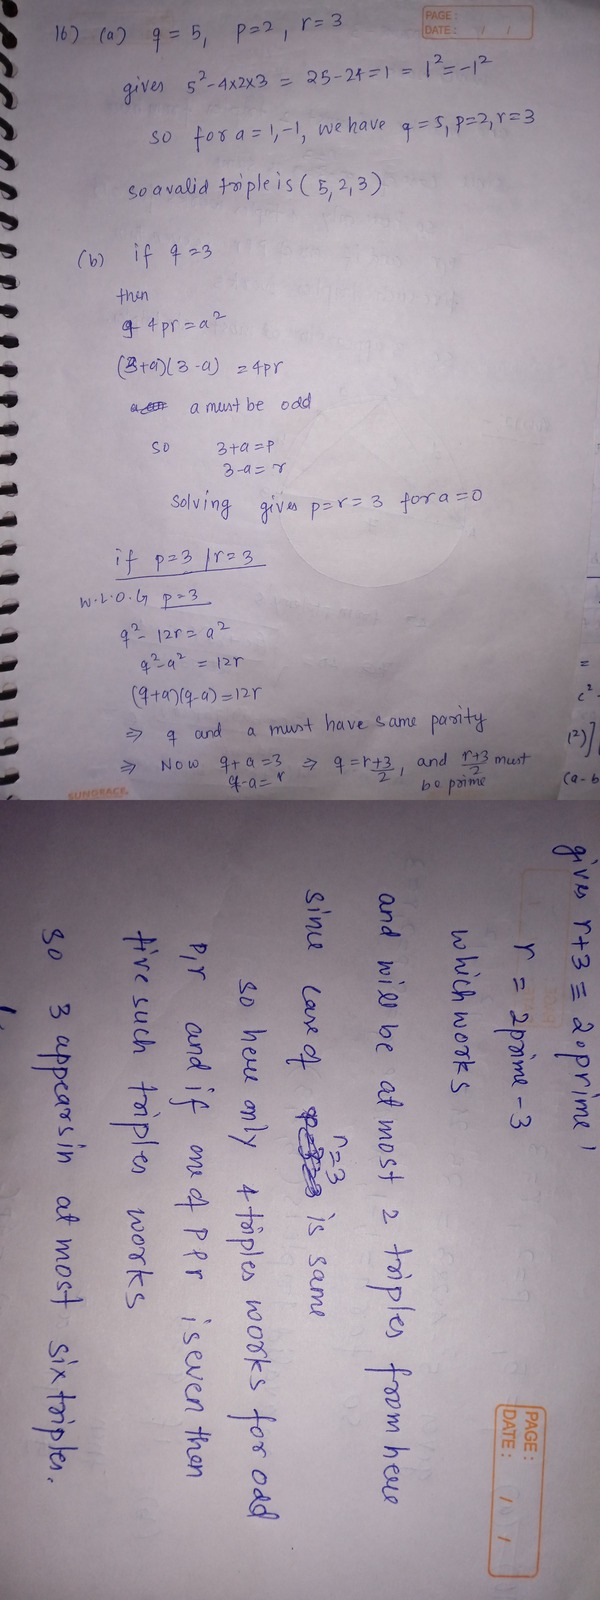 PAGE:
DATE: / /
16) (a) q = 5, p=2, r=3
gives 5²-4x2x3 = 25-24=1 = 1²=-1²
so for a=1,-1, we have q=5, p=2, r=3
so a valid triple is (5,2,3)
(b) if q=3
then
q - 4pr = a²
(3+a)(3-a) = 4pr
a must be odd
so 3+a=p
3-a= r
solving gives p=r=3 for a=0
if p=3 / r=3
W.L.O.G p=3
q²- 12r= a²
q²-a² = 12r
(q+a)(q-a)=12r
⇒ q and a must have same parity
⇒ Now q+a=3 ⇒ q=r+3/2, and r+3/2 must
q-a= r be prime
SUNGRACE
=
c²-
(2)]
(a-b
gives r+3 = 2.prime
r = 2prime-3
which works
and will be at most 2 triples from here
since case of r=3 is same
so here only 4 triples works for odd
p,r and if one of p & r is even then
five such triples works
so 3 appears in at most six triples.
PAGE:
DATE: / /